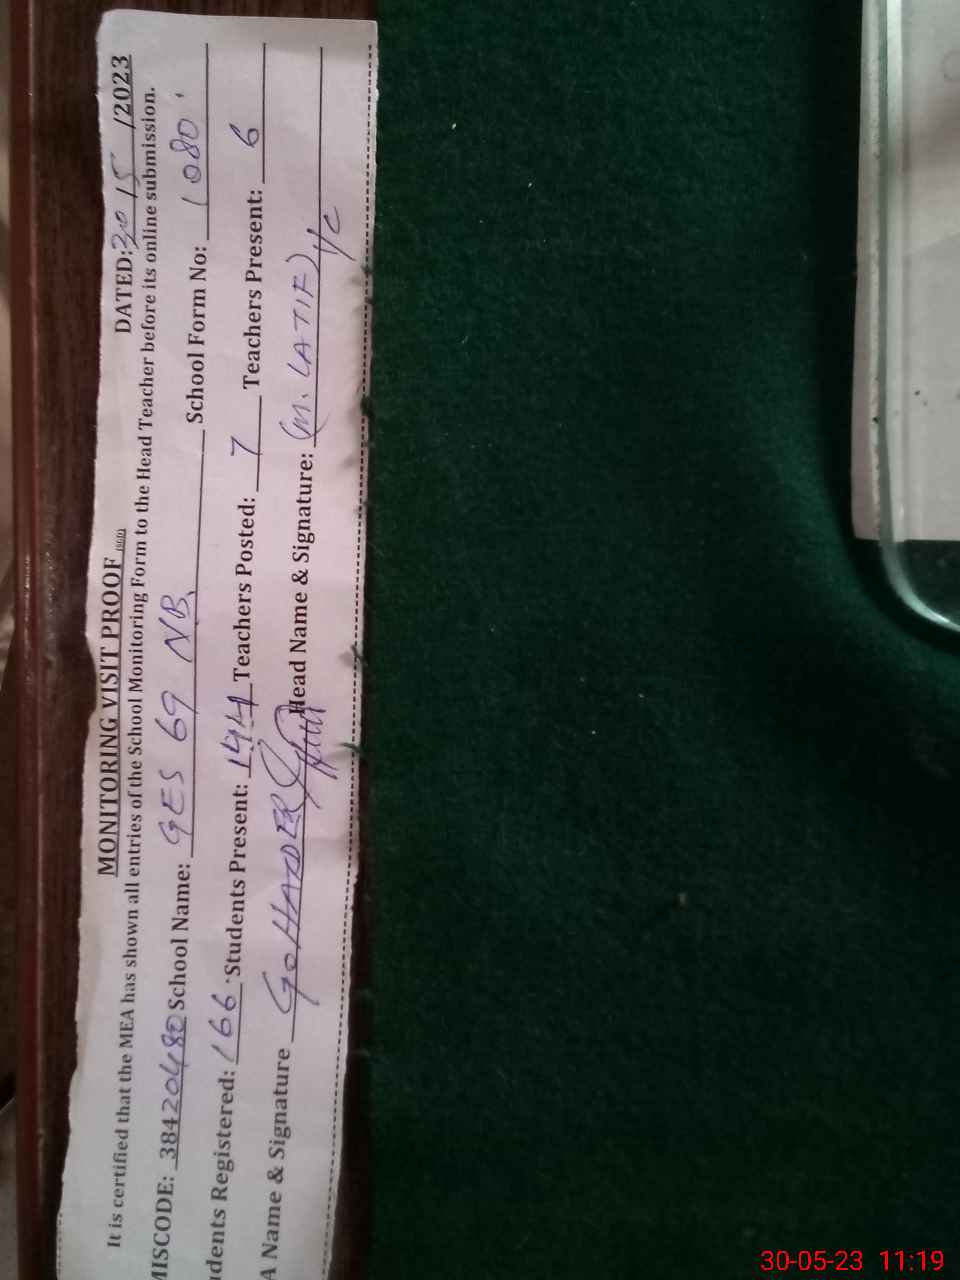 MONITORING VISIT PROOF (SED) DATED: 30/5/2023
It is certified that the MEA has shown all entries of the School Monitoring Form to the Head Teacher before its online submission.
MISCODE: 38420480 School Name: GES 69 NB School Form No: 1080
udents Registered: 166 Students Present: 144 Teachers Posted: 7 Teachers Present: 6
A Name & Signature Head Name & Signature: (M. LATIF) I/C
30-05-23 11:19